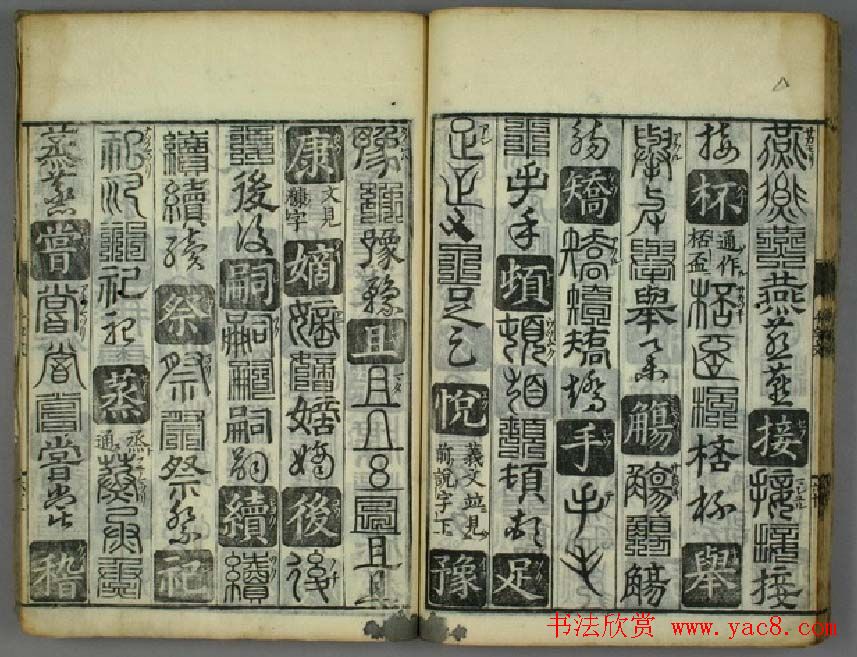 燕燕燕燕燕燕接接接接
接杯通作桮盃桮盃桮桮杯舉
舉舉舉舉舉觴觴觴觴
觴矯矯矯矯矯手手手
手手手頓頓頓頓頓頓足
足足足足足足悅義文並見前說字下豫
豫豫豫豫且且且且且且且
康文見糠字嫡嫡嫡嫡嫡後後
後後後嗣嗣嗣嗣嗣續續
續續續祭祭祭祭祭祀
祀祀祀祀祀蒸烝通蒸烝蒸
蒸蒸嘗嘗嘗嘗嘗嘗稽
书法欣赏 www.yac8.com